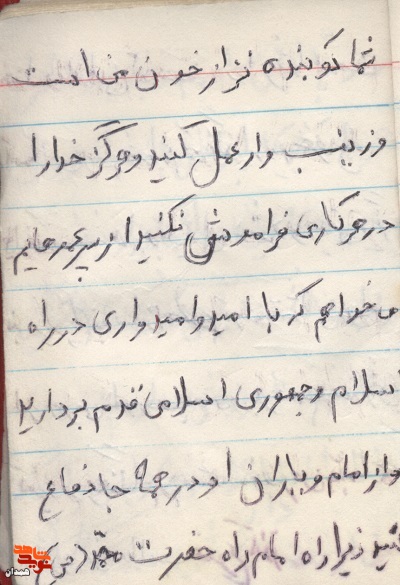 شما کوبنده تر از خون من است
و زینب وار عمل کنید و هرگز خدا را
در هر کاری فراموش نکنید از پسر عمه هایم
می خواهم که با امید و امیدواری در راه
اسلام و جمهوری اسلامی قدم بردارید
و از امام و یاران او در همه جا دفاع
کنید زیرا راه امام راه حضرت محمد (ص)
نوید شاهد
همدان